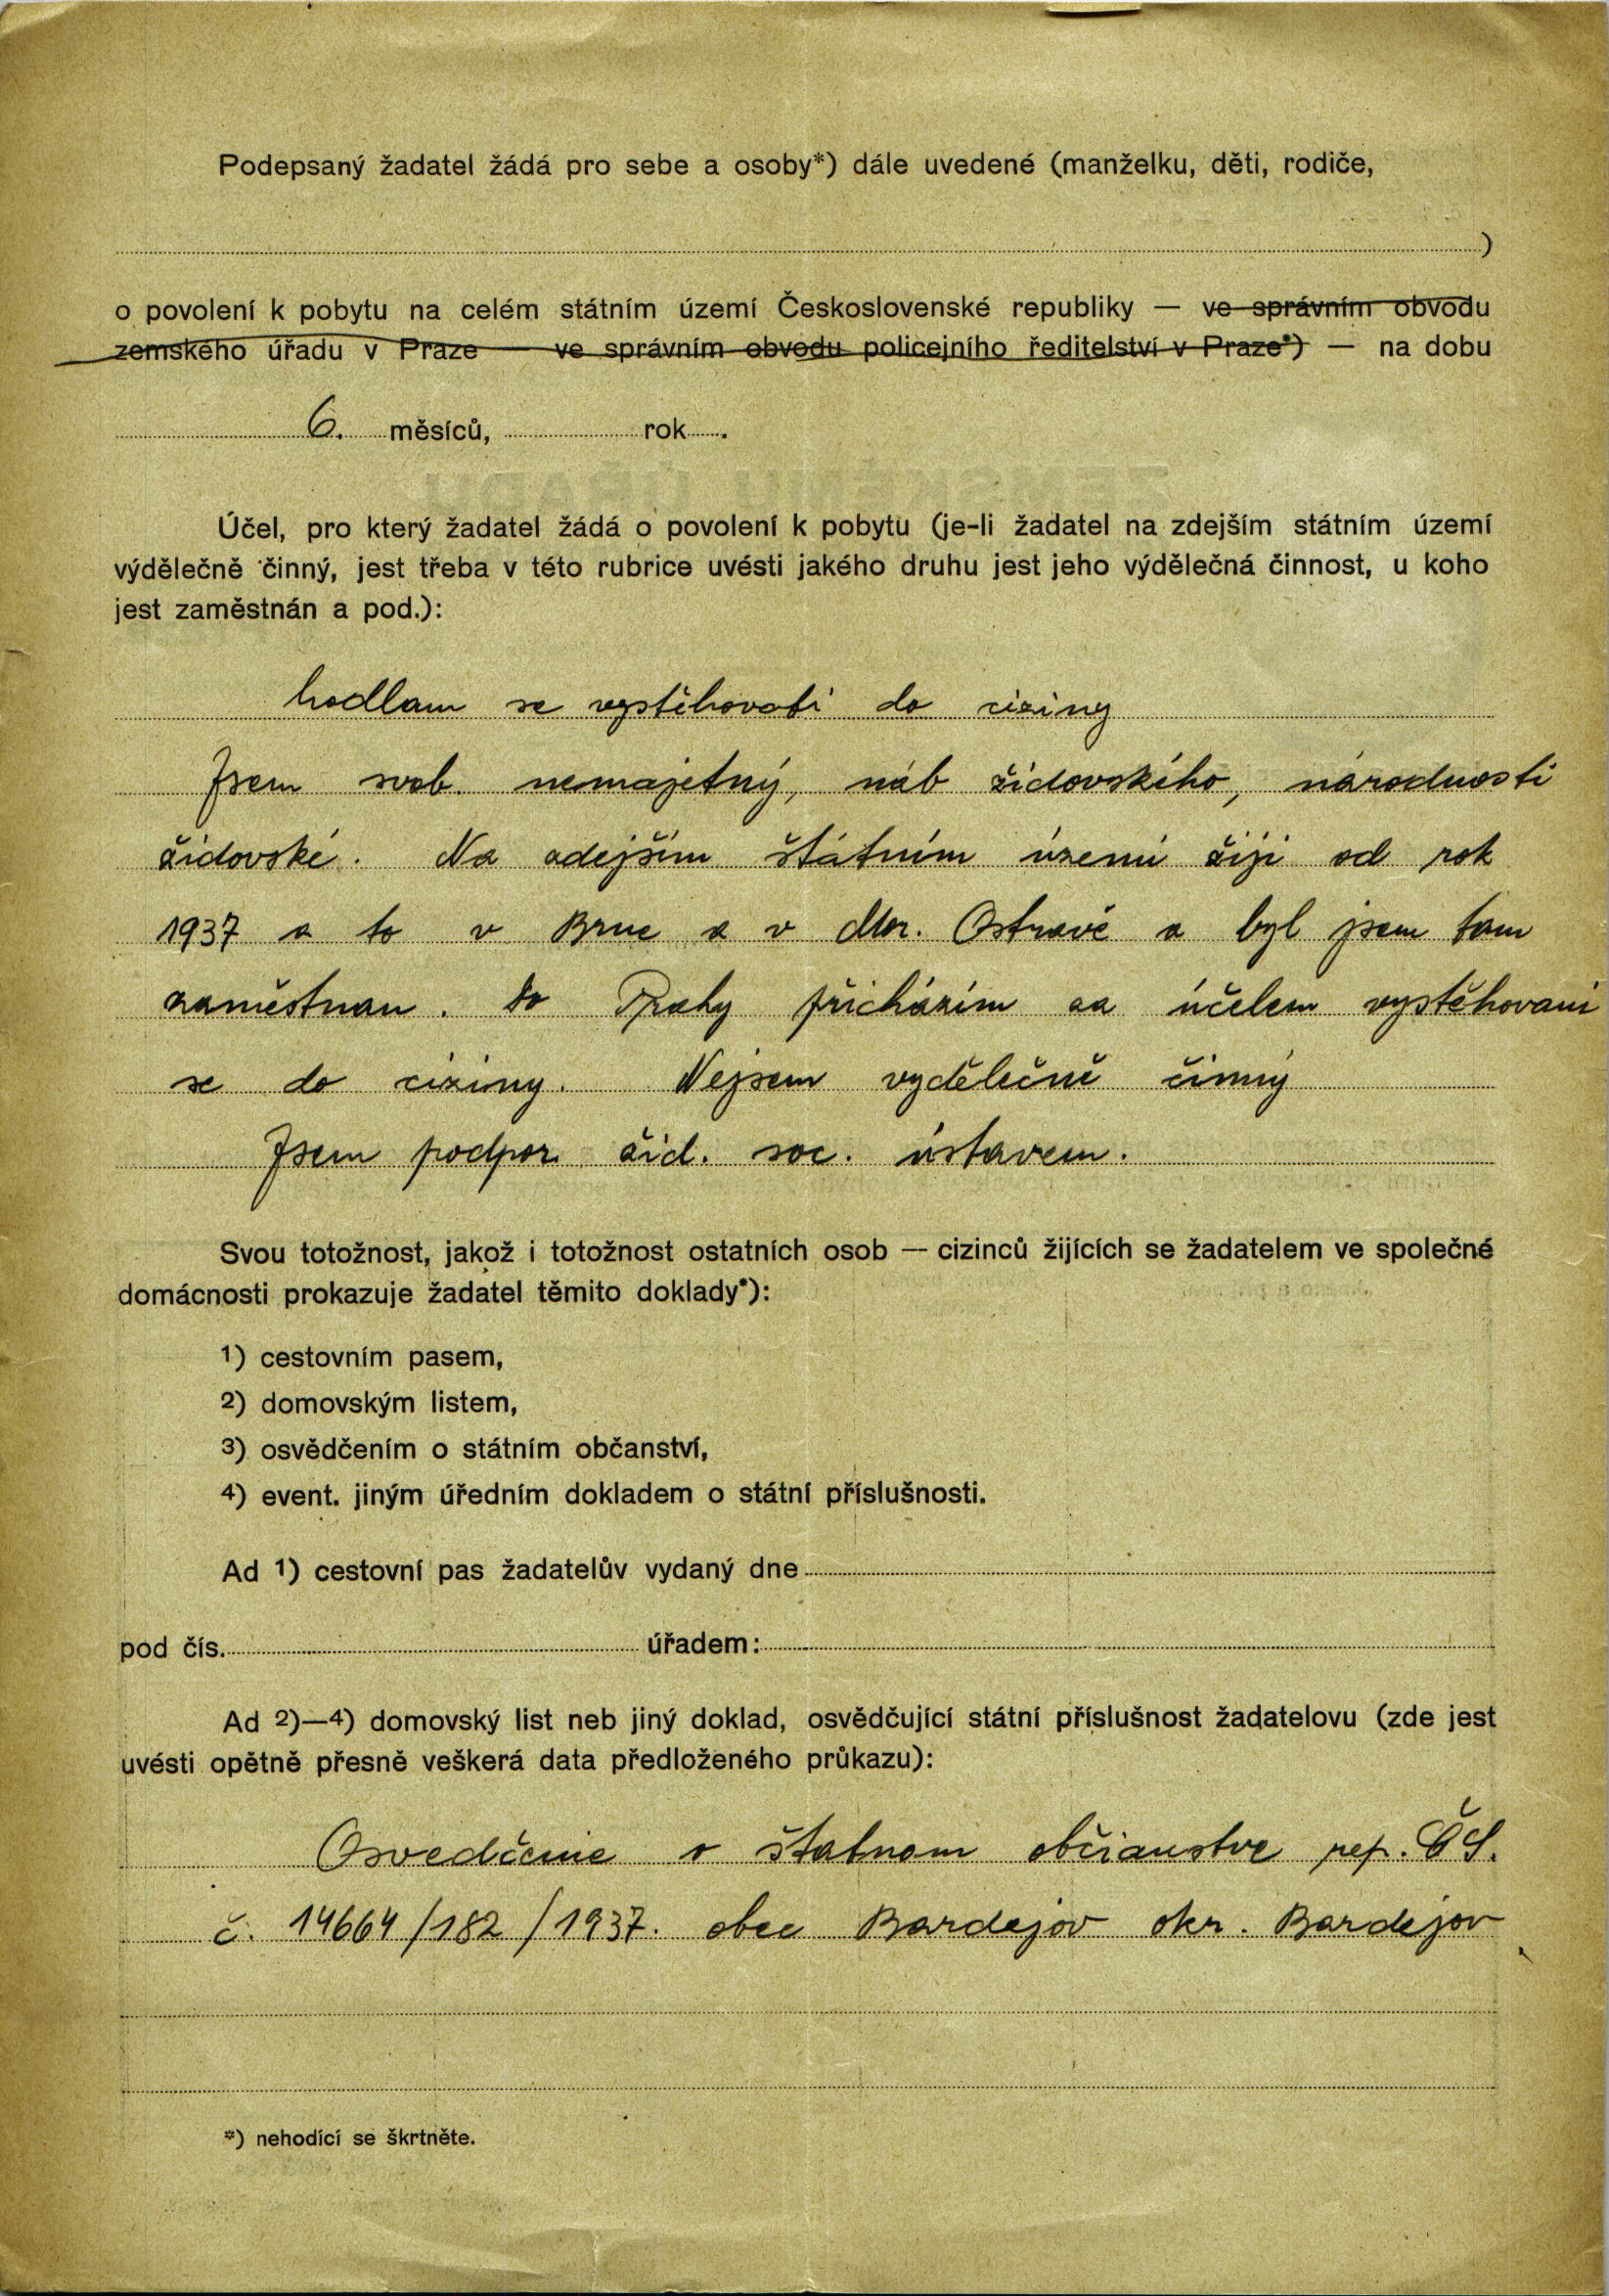 Podepsaný žadatel žádá pro sebe a osoby*) dále uvedené (manželku, děti, rodiče,
)
o povolení k pobytu na celém státním území Československé republiky — ve správním obvodu
zemského úřadu v Praze — ve správním obvodu policejního ředitelství v Praze*) — na dobu
6. měsíců, rok .
Účel, pro který žadatel žádá o povolení k pobytu (je-li žadatel na zdejším státním území
výdělečně činný, jest třeba v této rubrice uvésti jakého druhu jest jeho výdělečná činnost, u koho
jest zaměstnán a pod.):
hodlam se vystěhovati do ciziny
Jsem svob. nemajetný, náb židovského, národnosti
židovské. Na zdejším štátním územi žiji od rok
1937 a to v Brne a v Mor. Ostravě a byl jsem tam
zaměstnan. Do Prahy přicházím za účelem vystěhovani
se do ciziny. Nejsem vydělečně činný
Jsem podpor. žid. soc. ústavem.
Svou totožnost, jakož i totožnost ostatních osob — cizinců žijících se žadatelem ve společné
domácnosti prokazuje žadatel těmito doklady*):
1) cestovním pasem,
2) domovským listem,
3) osvědčením o státním občanství,
4) event. jiným úředním dokladem o státní příslušnosti.
Ad 1) cestovní pas žadatelův vydaný dne
pod čís. úřadem:
Ad 2)—4) domovský list neb jiný doklad, osvědčující státní příslušnost žadatelovu (zde jest
uvésti opětně přesně veškerá data předloženého průkazu):
Osvedčenie o štatnom občianstve rep. ČS.
č. 14664/182/1937. obec Bardejov okr. Bardejov
*) nehodící se škrtněte.